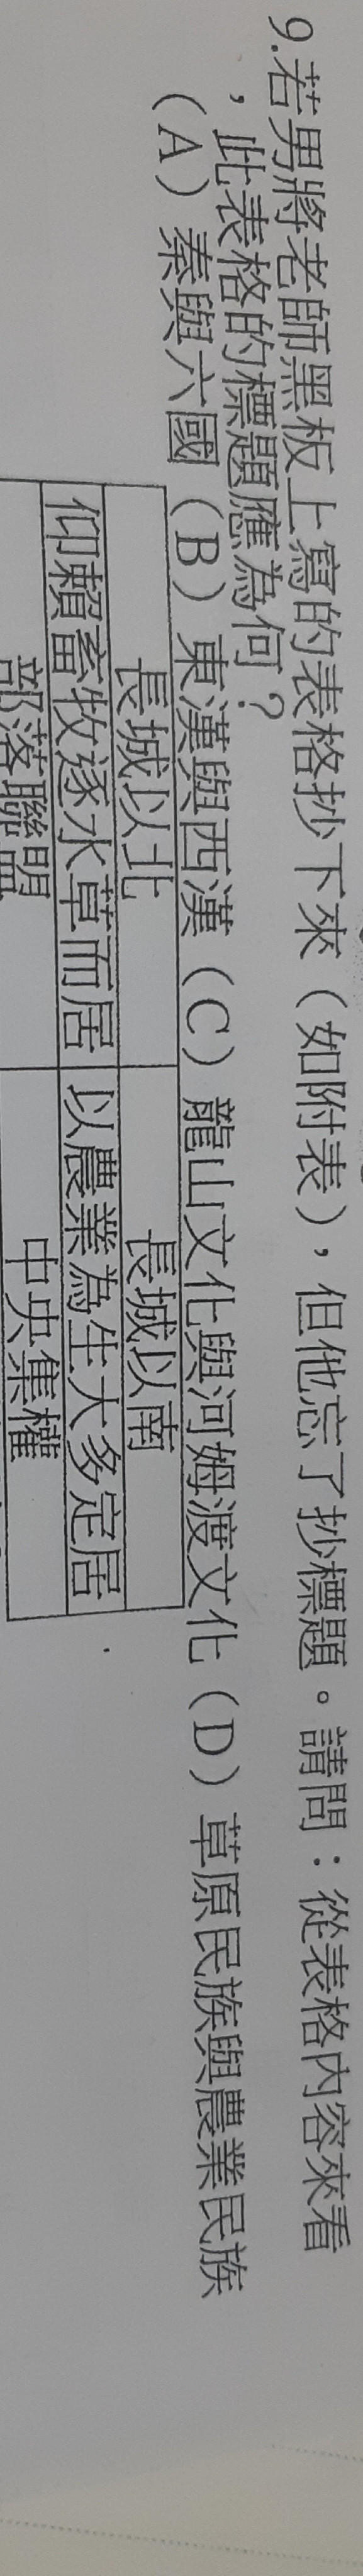 9.若男將老師黑板上寫的表格抄下來（如附表），但他忘了抄標題。請問：從表格內容來看
，此表格的標題應為何？
（A）秦與六國（B）東漢與西漢（C）龍山文化與河姆渡文化（D）草原民族與農業民族
長城以北 長城以南
仰賴畜牧逐水草而居 以農業為生大多定居
部落聯盟 中央集權